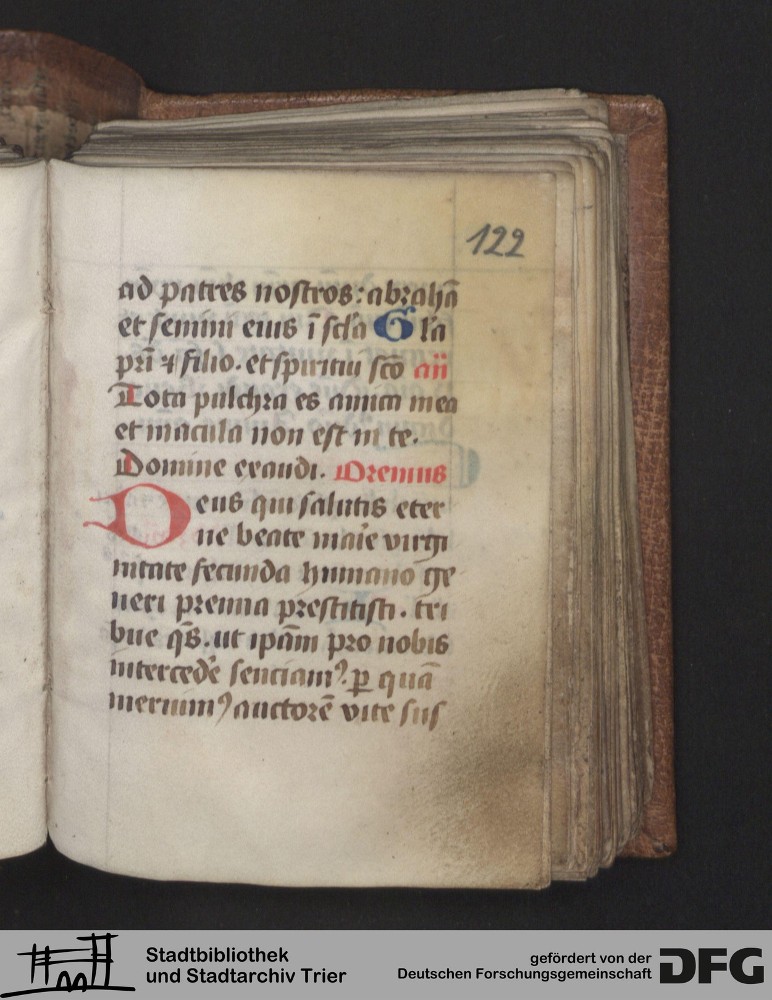 122
ad patres nostros: abrahā
et semini eius ī scl'a Gl'a
pr̄i ⁊ filio. et spiritui sc̄o an̄
Tota pulchra es amica mea
et macula non est in te.
Domine exaudi. Oremus
Deus qui salutis eter
ne beate marie virgi
nitate fecunda humano ge
neri premia prestitisti. tri
bue qs̄. ut ip̄am pro nobis
intercede᷑ senciamꝰ. ꝑ quā
meruimꝰ auctorē vite sus
Stadtbibliothek
und Stadtarchiv Trier
gefördert von der
Deutschen Forschungsgemeinschaft
DFG